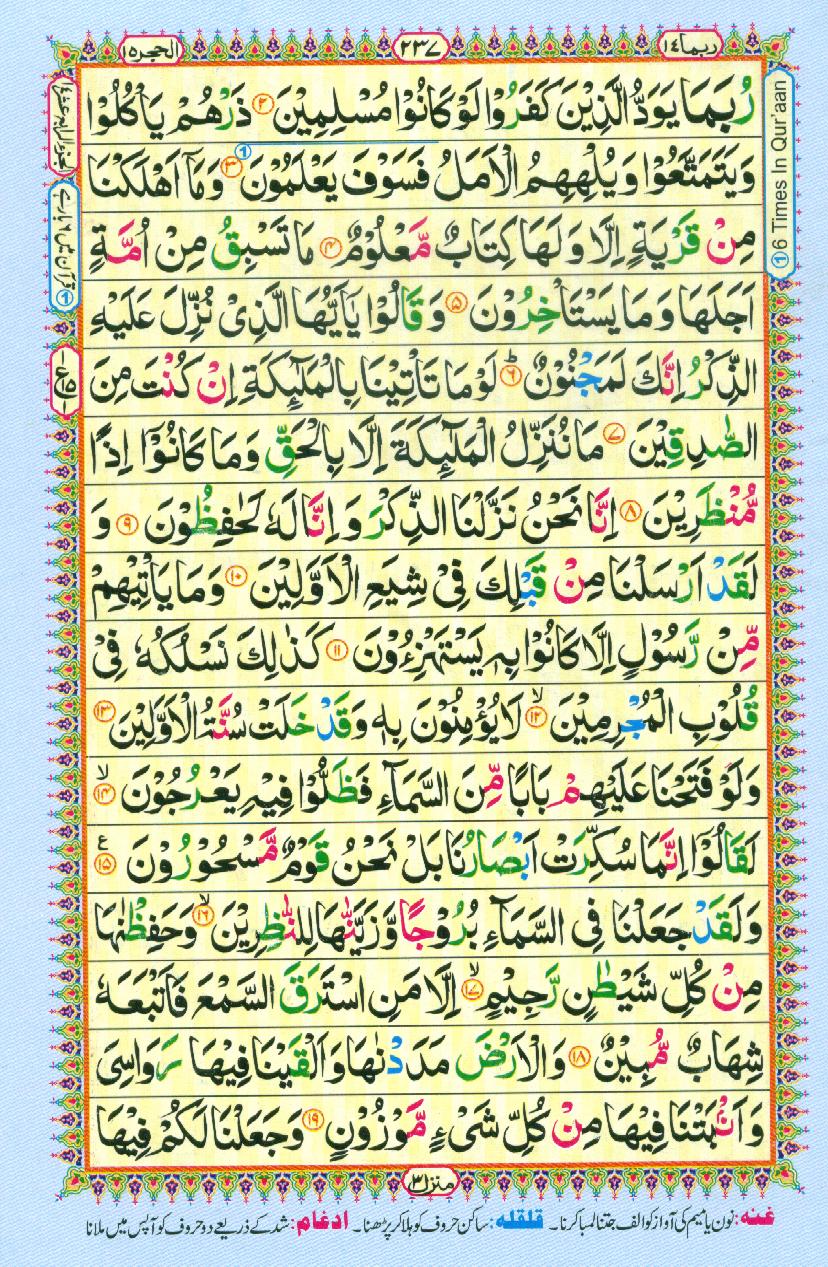 ربما ١٤
٢٣٧
الحجر ١٥
رُبَمَا یَوَدُّ الَّذِیْنَ كَفَرُوْا لَوْ كَانُوْا مُسْلِمِیْنَ ٢ ذَرْهُمْ یَاْكُلُوْا
وَیَتَمَتَّعُوْا وَیُلْهِهِمُ الْاَمَلُ فَسَوْفَ یَعْلَمُوْنَ ٣ وَمَاۤ اَهْلَكْنَا
مِنْ قَرْیَةٍ اِلَّا وَلَهَا كِتَابٌ مَّعْلُوْمٌ ٤ مَا تَسْبِقُ مِنْ اُمَّةٍ
اَجَلَهَا وَمَا یَسْتَاْخِرُوْنَ ٥ وَقَالُوْا یٰۤاَیُّهَا الَّذِیْ نُزِّلَ عَلَیْهِ
الذِّكْرُ اِنَّكَ لَمَجْنُوْنٌ ٦ لَوْ مَا تَاْتِیْنَا بِالْمَلٰٓىِٕكَةِ اِنْ كُنْتَ مِنَ
الصّٰدِقِیْنَ ٧ مَا نُنَزِّلُ الْمَلٰٓىِٕكَةَ اِلَّا بِالْحَقِّ وَمَا كَانُوْۤا اِذًا
مُّنْظَرِیْنَ ٨ اِنَّا نَحْنُ نَزَّلْنَا الذِّكْرَ وَاِنَّا لَهٗ لَحٰفِظُوْنَ ٩ وَ
لَقَدْ اَرْسَلْنَا مِنْ قَبْلِكَ فِیْ شِیَعِ الْاَوَّلِیْنَ ١٠ وَمَا یَاْتِیْهِمْ
مِّنْ رَّسُوْلٍ اِلَّا كَانُوْا بِهٖ یَسْتَهْزِءُوْنَ ١١ كَذٰلِكَ نَسْلُكُهٗ فِیْ
قُلُوْبِ الْمُجْرِمِیْنَ ١٢ لَا یُؤْمِنُوْنَ بِهٖ وَقَدْ خَلَتْ سُنَّةُ الْاَوَّلِیْنَ ١٣
وَلَوْ فَتَحْنَا عَلَیْهِمْ بَابًا مِّنَ السَّمَآءِ فَظَلُّوْا فِیْهِ یَعْرُجُوْنَ ١٤
لَقَالُوْۤا اِنَّمَا سُكِّرَتْ اَبْصَارُنَا بَلْ نَحْنُ قَوْمٌ مَّسْحُوْرُوْنَ ١٥
وَلَقَدْ جَعَلْنَا فِی السَّمَآءِ بُرُوْجًا وَّزَیَّنّٰهَا لِلنّٰظِرِیْنَ ١٦ وَحَفِظْنٰهَا
مِنْ كُلِّ شَیْطٰنٍ رَّجِیْمٍ ١٧ اِلَّا مَنِ اسْتَرَقَ السَّمْعَ فَاَتْبَعَهٗ
شِهَابٌ مُّبِیْنٌ ١٨ وَالْاَرْضَ مَدَدْنٰهَا وَاَلْقَیْنَا فِیْهَا رَوَاسِیَ
وَاَنْۢبَتْنَا فِیْهَا مِنْ كُلِّ شَیْءٍ مَّوْزُوْنٍ ١٩ وَجَعَلْنَا لَكُمْ فِیْهَا
① 6 Times In Qur'aan
قرآن میں ٦ بار ہے ①
منزل ٣
غنه: نون یا میم کی آواز کو الف جتنا لمبا کرنا۔ قلقله: ساکن حروف کو ہلا کر پڑھنا۔ ادغام: شد کے ذریعے دو حروف کو آپس میں ملانا